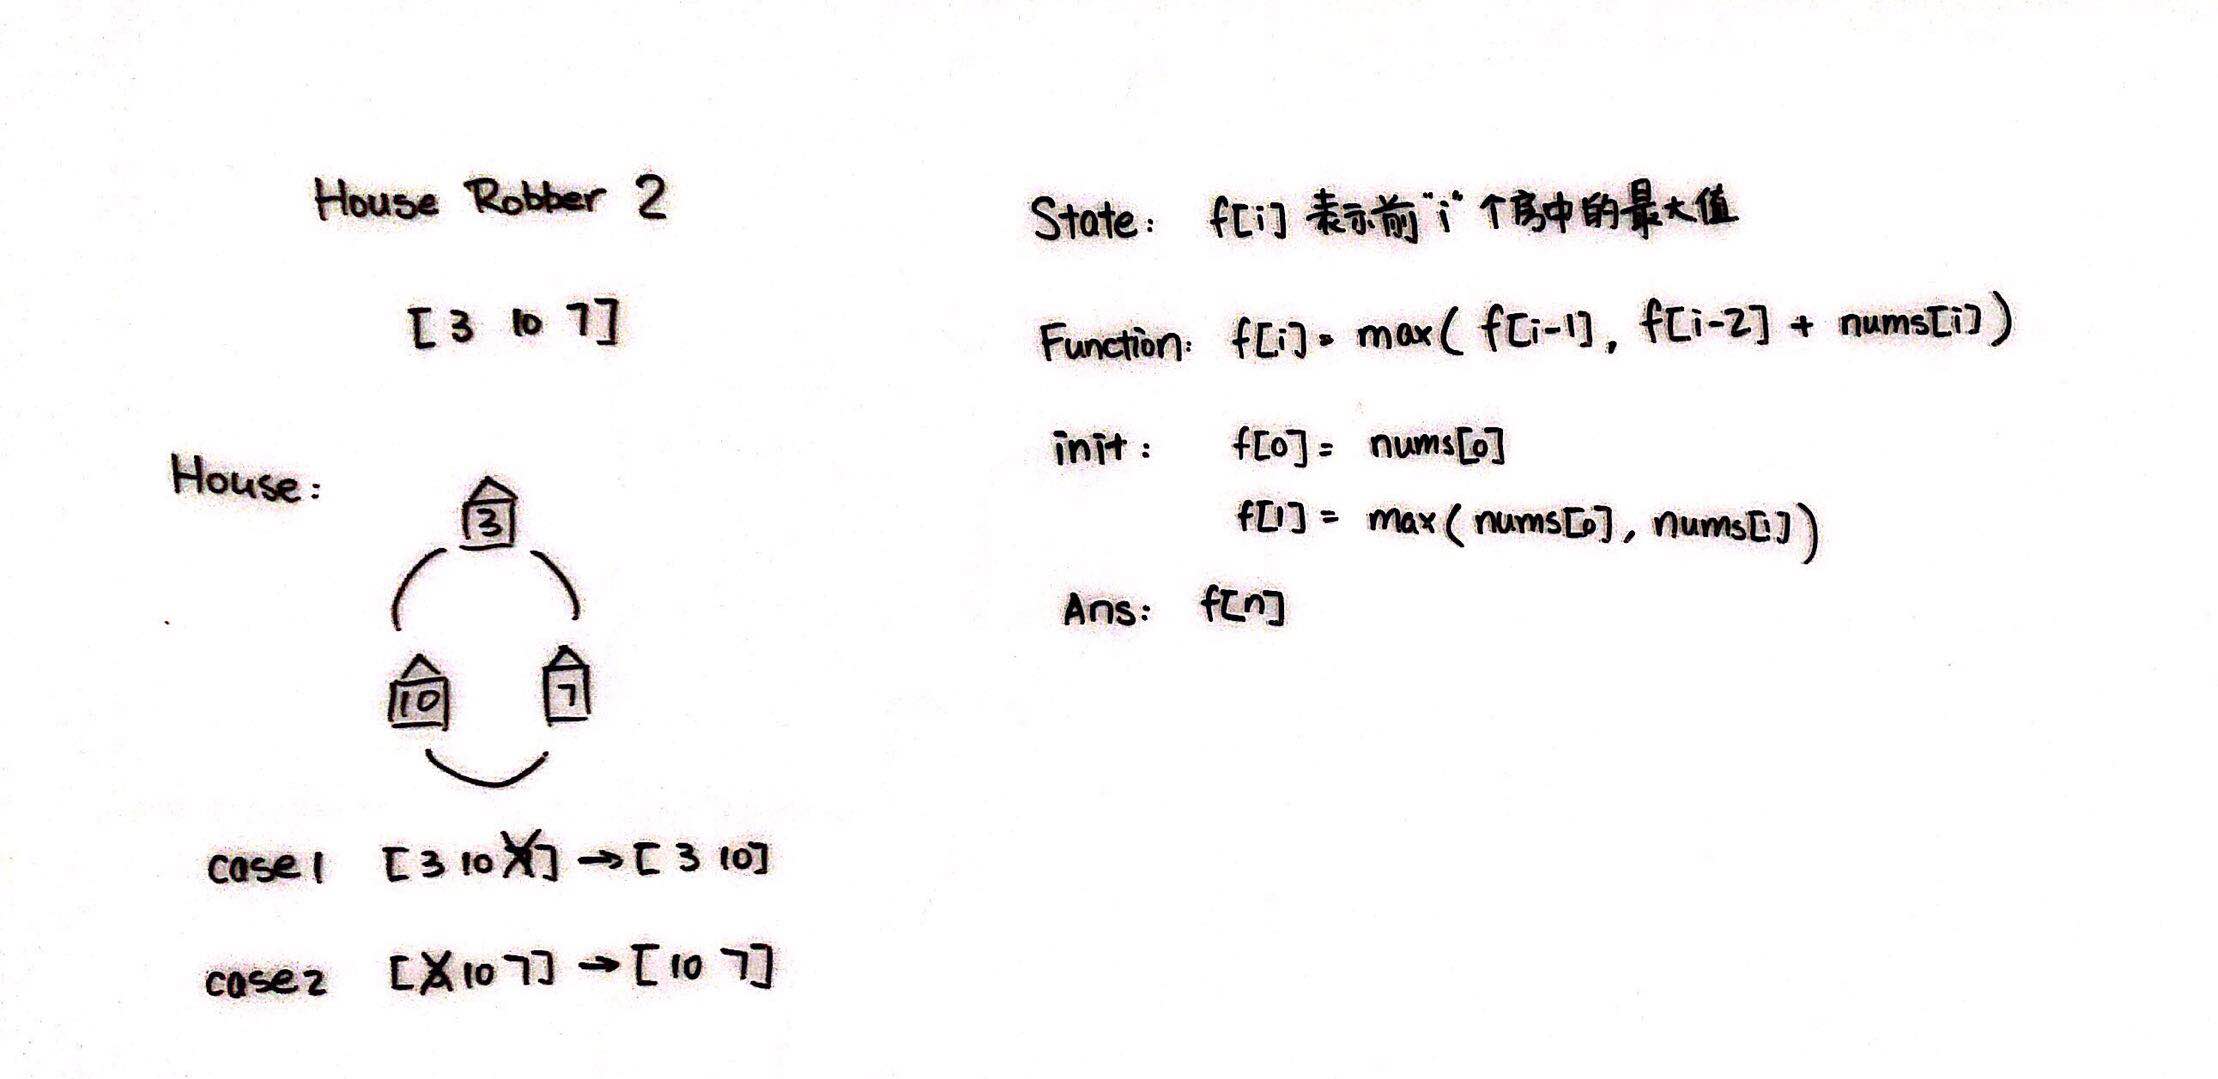 House Robber 2
[ 3 10 7 ]
House:
3
10
7
case1 [ 3 10 7 ] → [ 3 10 ]
case2 [ 3 10 7 ] → [ 10 7 ]
State: f[i] 表示前"i"个房中的最大值
Function: f[i] = max( f[i-1], f[i-2] + nums[i] )
init: f[0] = nums[0]
f[1] = max( nums[0], nums[1] )
Ans: f[n]